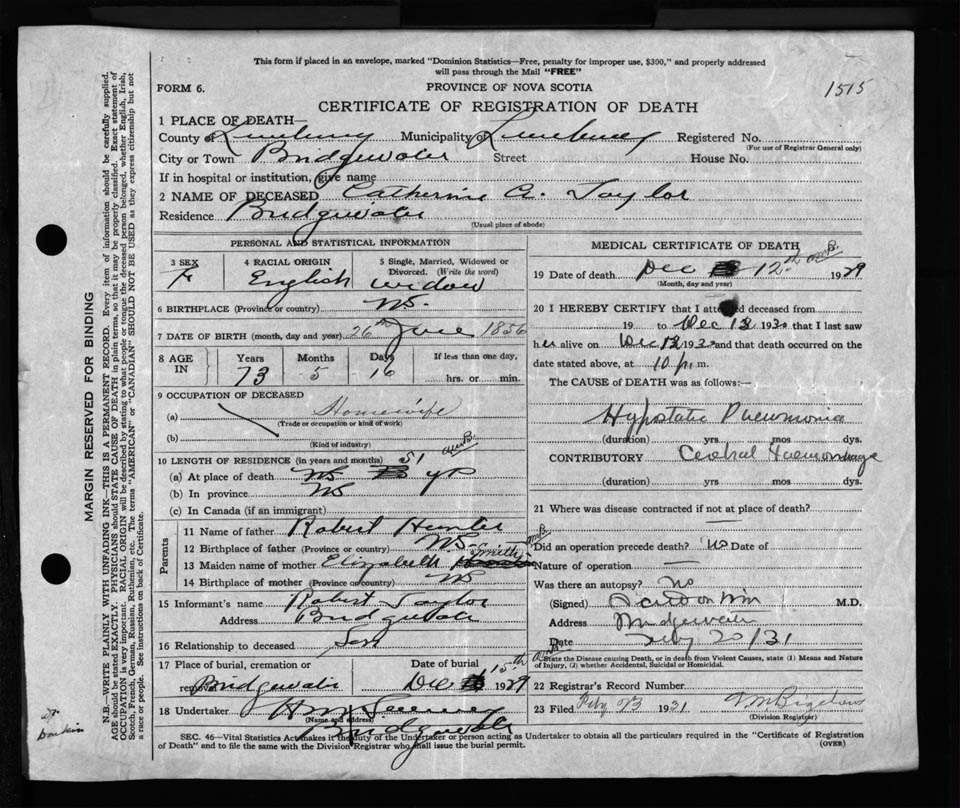 This form if placed in an envelope, marked "Dominion Statistics—Free, penalty for improper use, $300," and properly addressed
will pass through the Mail "FREE"
FORM 6.
PROVINCE OF NOVA SCOTIA
1515
CERTIFICATE OF REGISTRATION OF DEATH
1 PLACE OF DEATH—
County of Lunenburg Municipality of Lunenburg Registered No.
(For use of Registrar General only)
City or Town Bridgewater Street House No.
If in hospital or institution, give name
2 NAME OF DECEASED Catherine A. Taylor
Residence Bridgewater
(Usual place of abode)
PERSONAL AND STATISTICAL INFORMATION
3 SEX 4 RACIAL ORIGIN 5 Single, Married, Widowed or Divorced. (Write the word)
F English widow
6 BIRTHPLACE (Province or country) NS.
7 DATE OF BIRTH (month, day and year) 26th June 1856
8 AGE IN Years Months Days If less than one day,
73 5 16 hrs. or min.
9 OCCUPATION OF DECEASED
(a) Homewife
(Trade or occupation or kind of work)
(b)
(Kind of industry)
10 LENGTH OF RESIDENCE (in years and months) 51
(a) At place of death yrs
(b) In province NS
(c) In Canada (if an immigrant)
Parents
11 Name of father Robert Hemler
12 Birthplace of father (Province or country) NS.
13 Maiden name of mother Elizabeth Smith
14 Birthplace of mother (Province or country) NS
15 Informant's name Robert Taylor
Address Bridgewater
16 Relationship to deceased Son
17 Place of burial, cremation or removal Bridgewater
Date of burial Dec 15th 1929
18 Undertaker
(Name and address)
Bridgewater
MEDICAL CERTIFICATE OF DEATH
19 Date of death Dec 12th 1929
(Month, day and year)
20 I HEREBY CERTIFY that I attended deceased from
19 to Dec 12 1930 that I last saw
her alive on Dec 12 1930 and that death occurred on the
date stated above, at 10 p. m.
The CAUSE of DEATH was as follows:—
Hypostatic Pneumonia
(duration) yrs mos dys.
CONTRIBUTORY Cerebral Haemorrhage
(duration) yrs. mos. dys.
21 Where was disease contracted if not at place of death?
Did an operation precede death? No Date of
Nature of operation —
Was there an autopsy? No
(Signed) M.D.
Address Bridgewater
Date Feby 20/31
State the Disease causing Death, or in death from Violent Causes, state (1) Means and Nature
of Injury, (2) whether Accidental, Suicidal or Homicidal.
22 Registrar's Record Number
23 Filed Feby 23 1931
(Division Registrar)
SEC. 46—Vital Statistics Act makes it the duty of the Undertaker or person acting as Undertaker to obtain all the particulars required in the "Certificate of Registration
of Death" and to file the same with the Division Registrar who shall issue the burial permit.
(OVER)
MARGIN RESERVED FOR BINDING
N.B.—WRITE PLAINLY WITH UNFADING INK—THIS IS A PERMANENT RECORD. Every item of information should be carefully supplied.
AGE should be stated EXACTLY. PHYSICIANS should STATE CAUSE OF DEATH in plain terms, so that it may be properly classified. Exact statement of
OCCUPATION is very important. RACIAL ORIGIN will be described by stating to what people or tongue the deceased person belonged, whether English, Irish,
Scotch, French, German, Russian, Ruthenian, etc. The terms "AMERICAN" or "CANADIAN" SHOULD NOT BE USED as they express citizenship but not
a race or people. See instructions on back of Certificate.